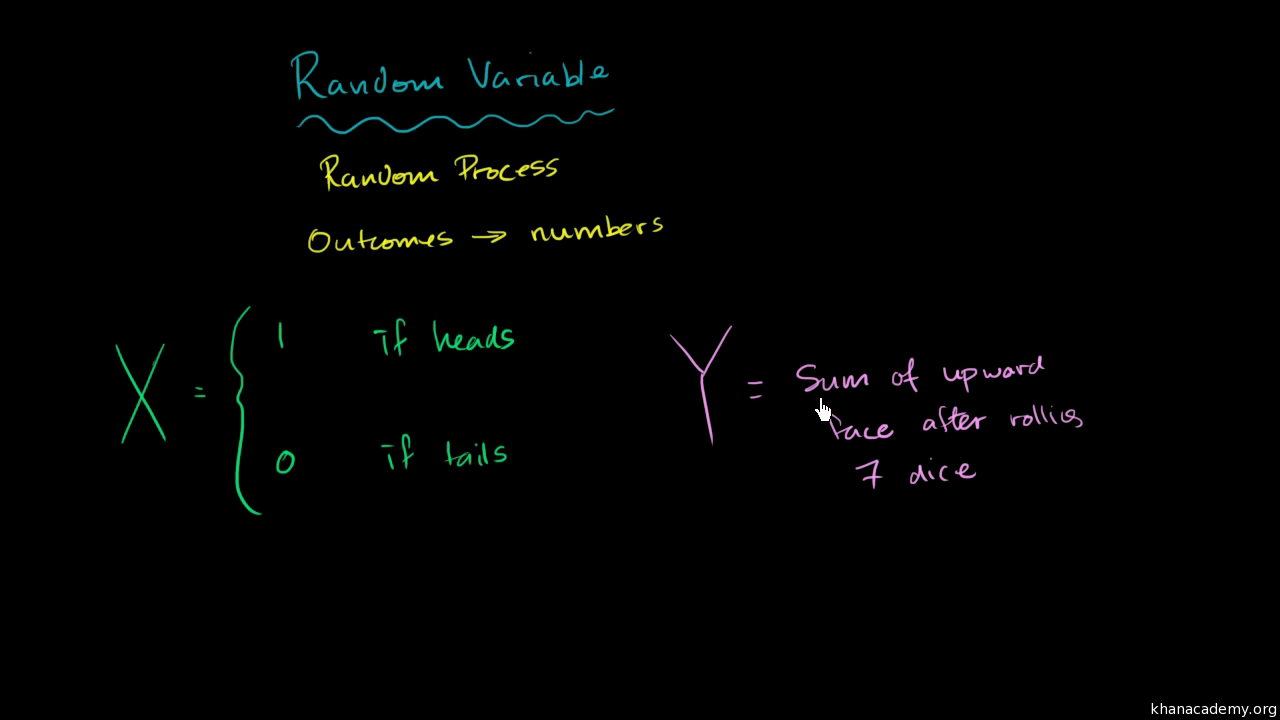 Random Variable
Random Process
Outcomes → numbers
X = { 1 if heads
0 if tails
Y = Sum of upward
face after rolling
7 dice
khanacademy.org